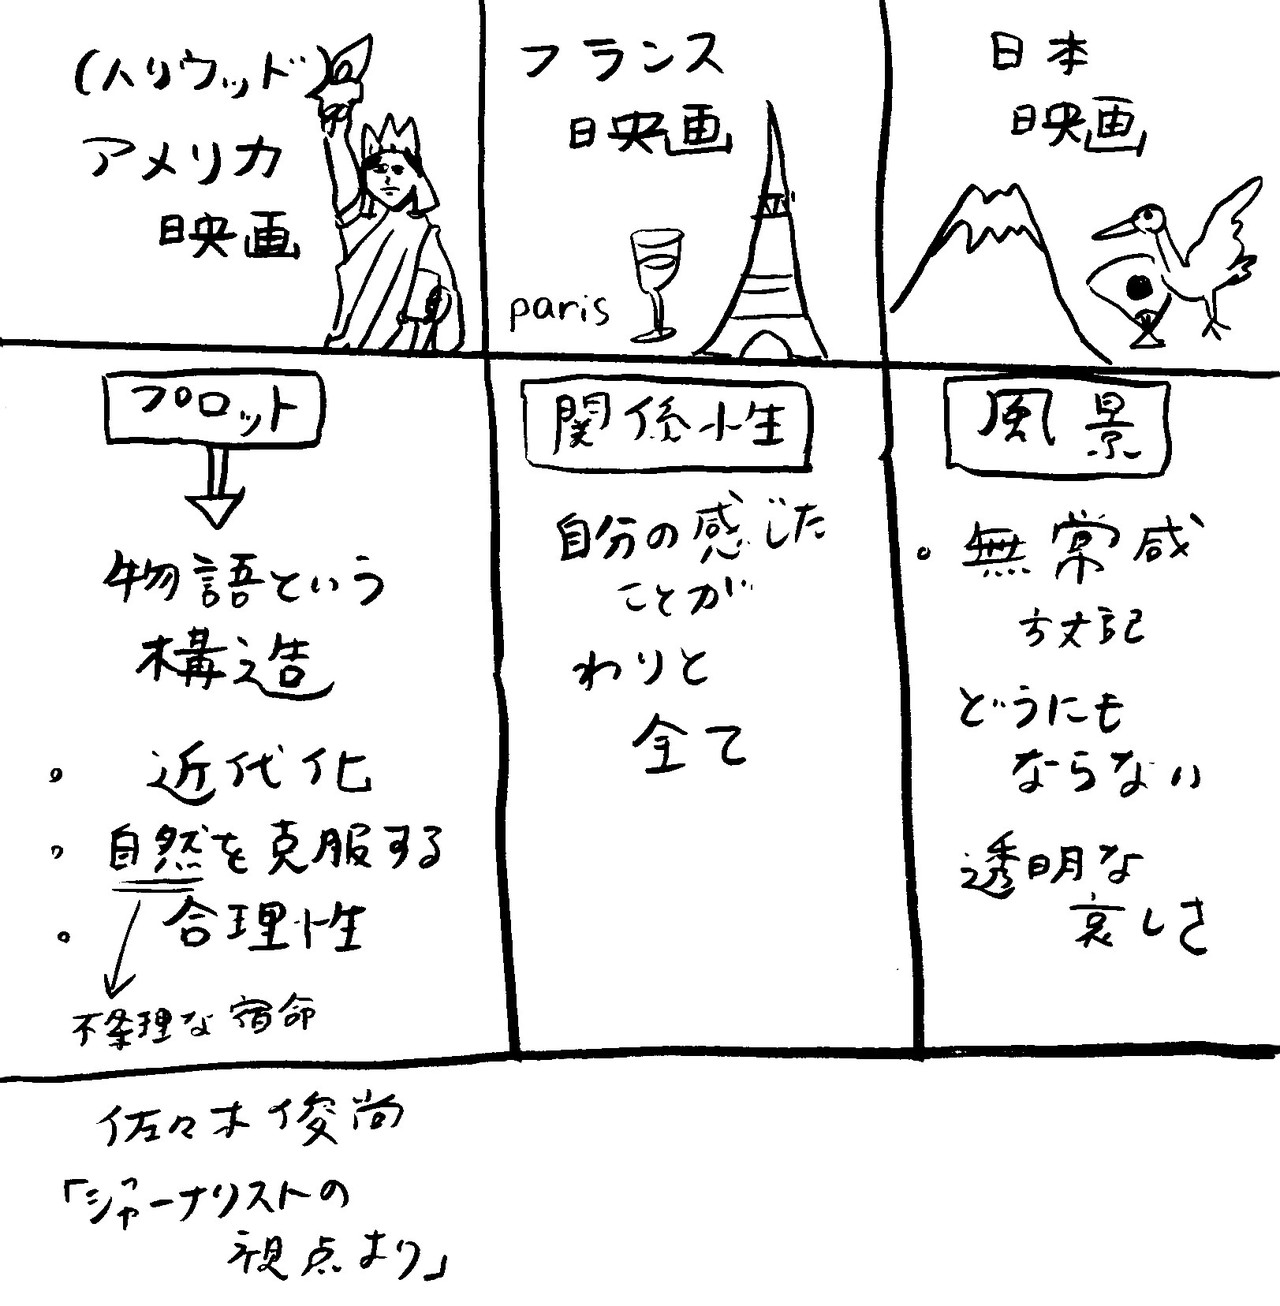 (ハリウッド)
アメリカ
映画
フランス
映画
paris
日本
映画
プロット
物語という
構造
。近代化
。自然を克服する
。合理性
不条理な宿命
関係性
自分の感じた
ことが
わりと
全て
風景
。無常感
方丈記
どうにも
ならない
透明な
哀しさ
佐々木俊尚
「ジャーナリストの
視点より」